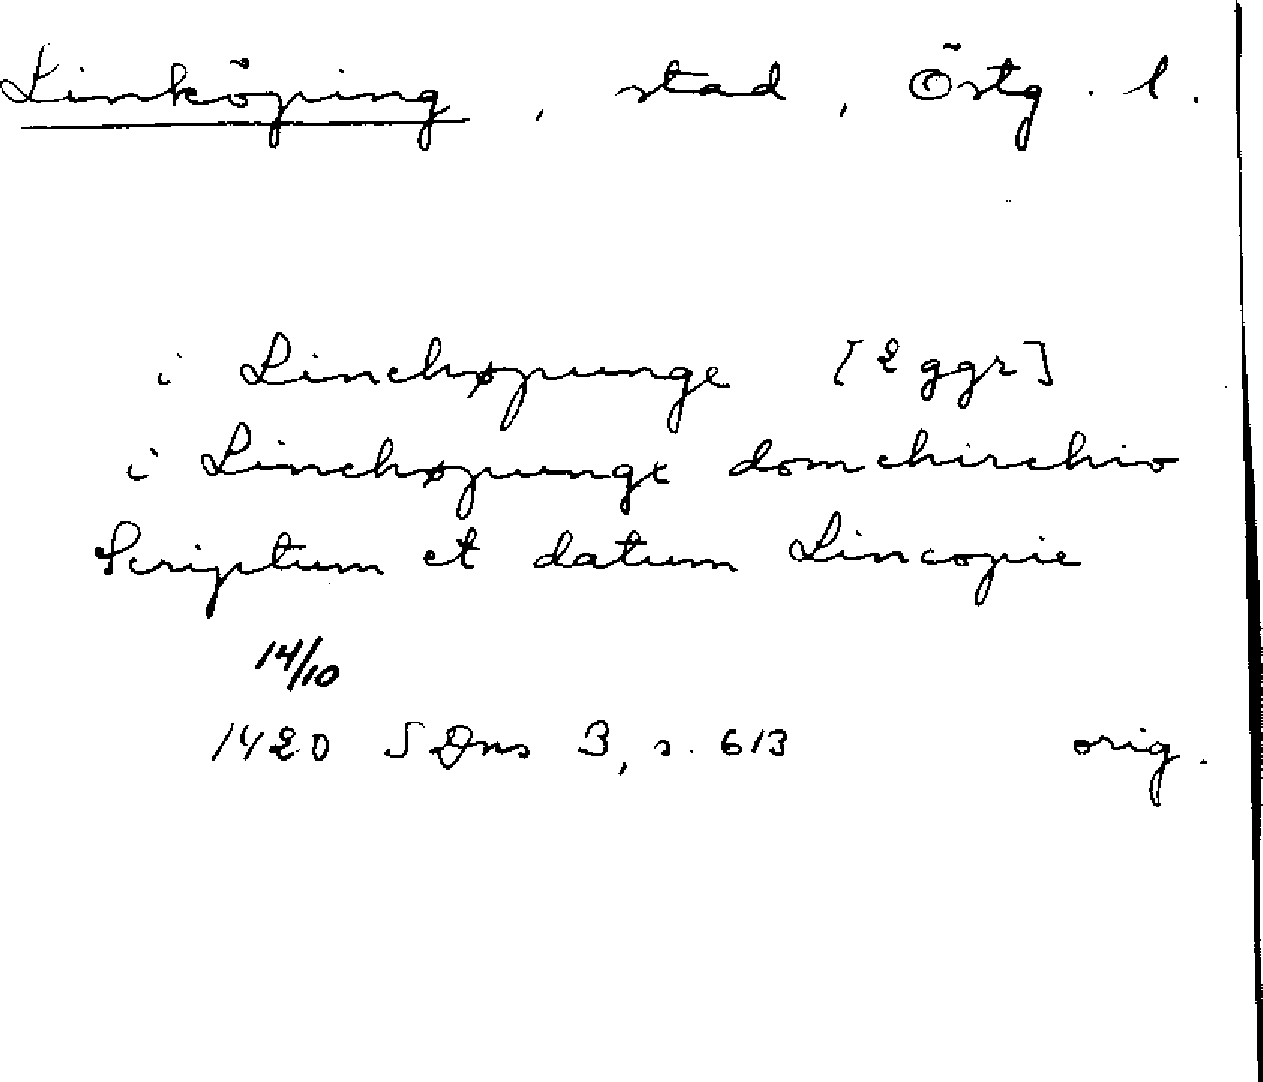 Linköping, stad, Östg. l.
i Linchøpunge [2 ggr]
i Linchøpunge domchirchio
Scriptum et datum Lincopie
14/10
1420 SDns 3, s. 613 orig.